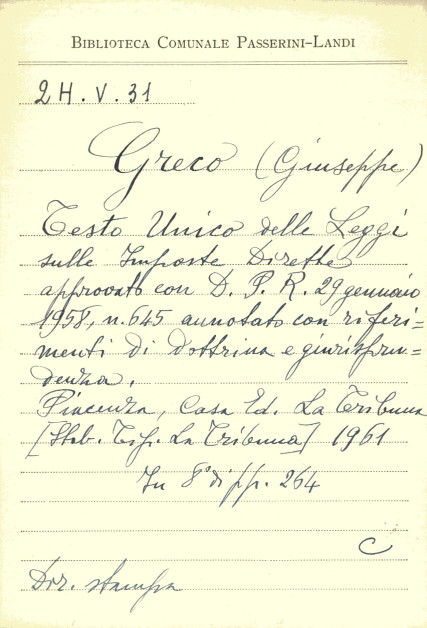 BIBLIOTECA COMUNALE PASSERINI-LANDI
2H.V.31
Greco (Giuseppe)
Testo Unico delle Leggi
sulle Imposte Dirette
approvato con D. P. R. 29 gennaio
1958, n. 645 annotato con riferi=
menti di dottrina e giurispru=
denza.
Piacenza, Casa Ed. La Tribuna
[Stab. Tip. La Tribuna] 1961
In 8° di pp. 264
C
Dir. stampa